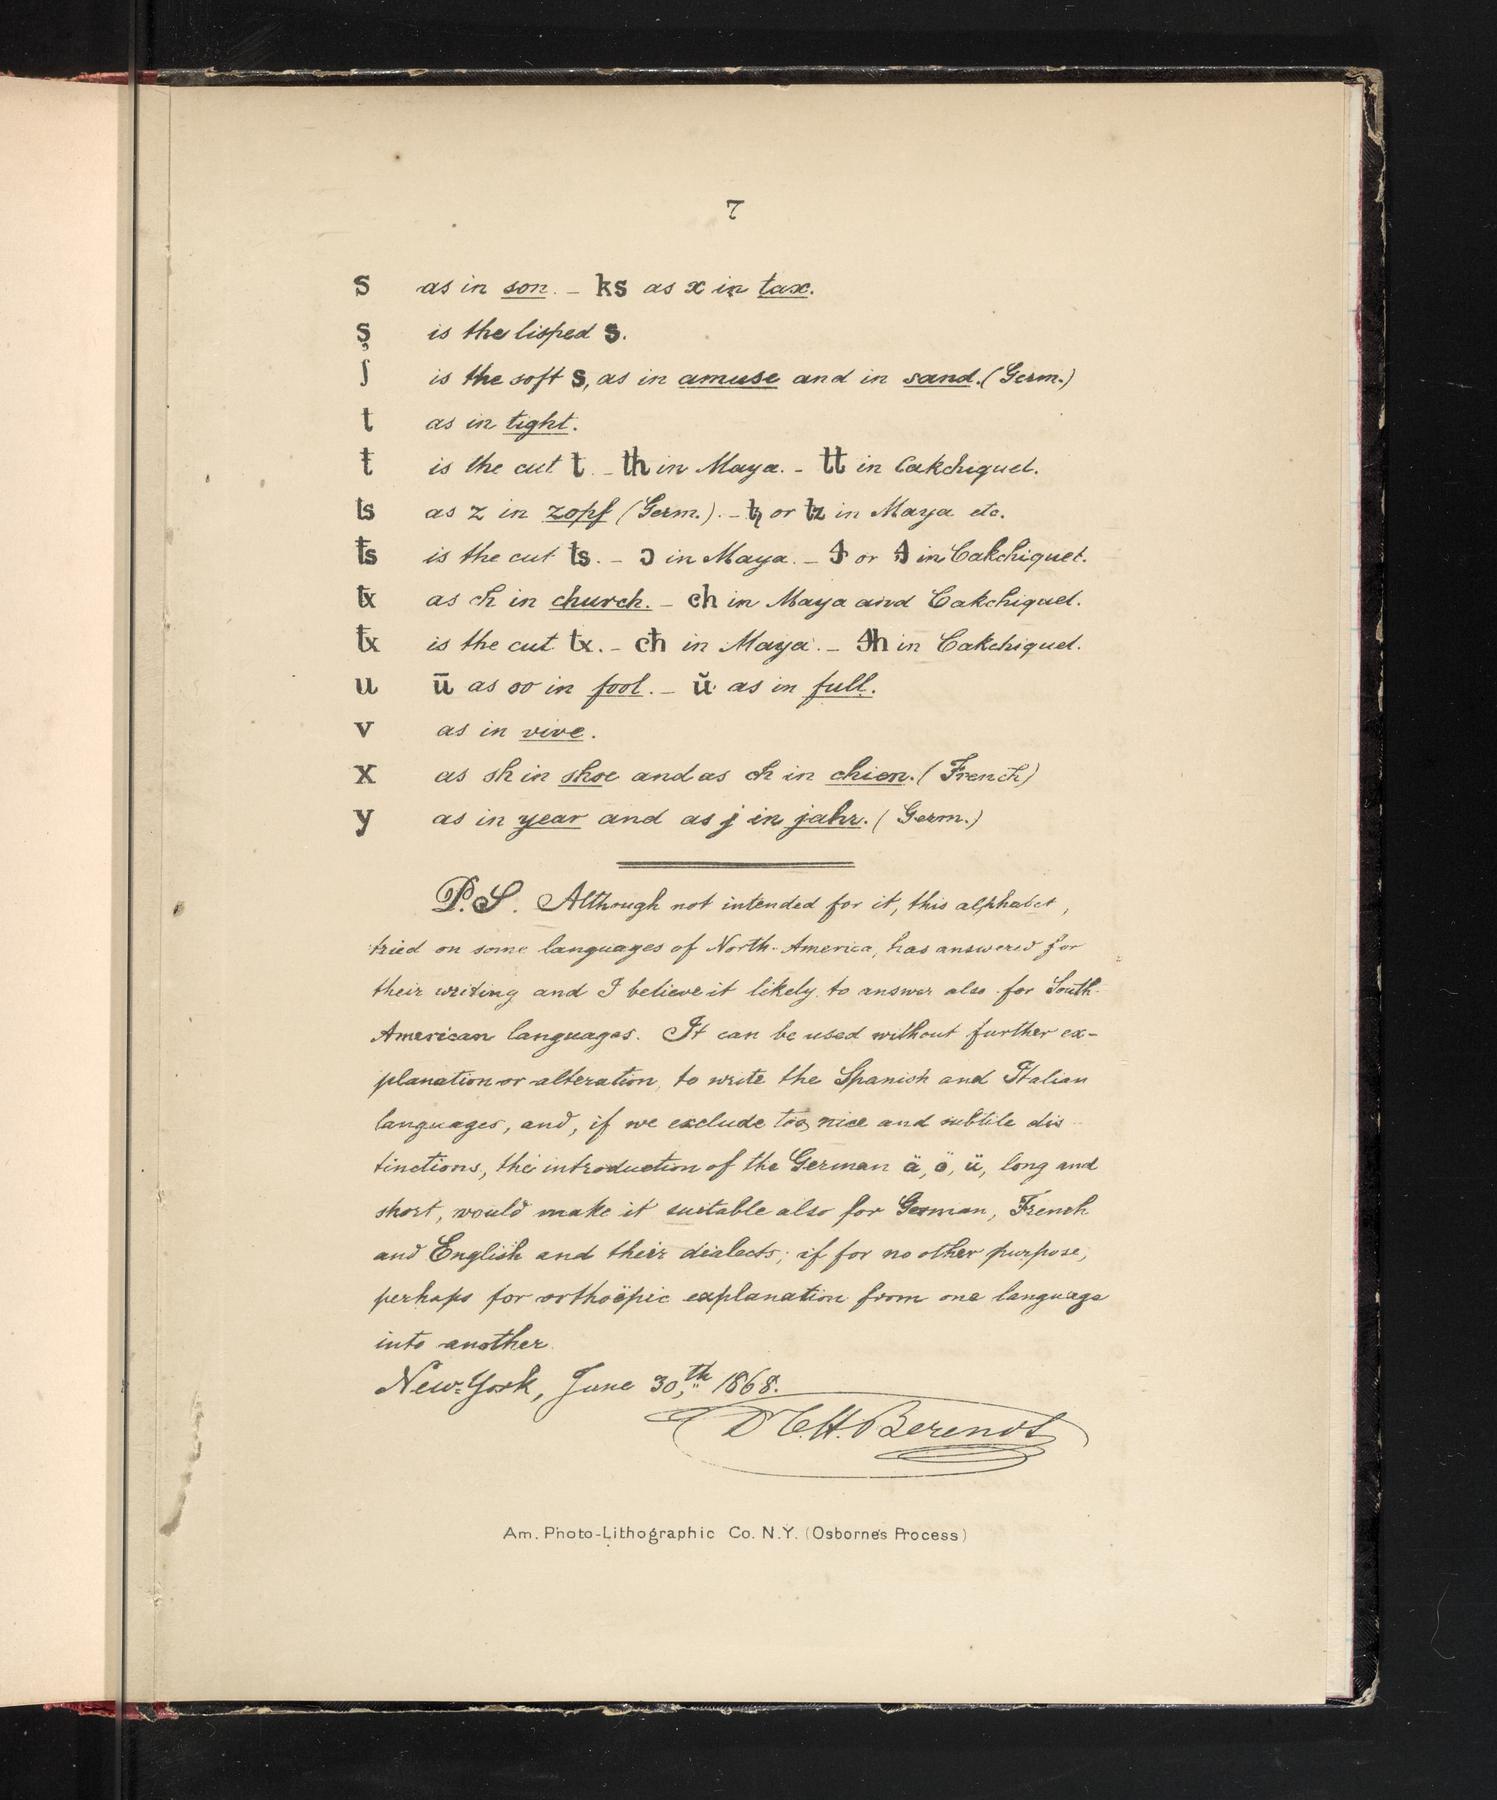 7
s as in son. – ks as x in tax.
ş is the lisped s.
ʃ is the soft s, as in amuse and in sand. (Germ.)
t as in tight.
ŧ is the cut t. – th in Maya. – tt in Cakchiquel.
ts as z in zopf (Germ.). – tz or tz in Maya etc.
ŧs is the cut ts. – ɔ in Maya. – or in Cakchiquel.
tx as ch in church. – ch in Maya and Cakchiquel.
ŧx is the cut tx. – cħ in Maya. – h in Cakchiquel.
u ū as oo in fool. – ŭ as in full.
v as in vive.
x as sh in shoe and as ch in chien. (French)
y as in year and as j in jahr. (Germ.)
P.S. Although not intended for it, this alphabet,
tried on some languages of North-America, has answered for
their writing and I believe it likely to answer also for South-
American languages. It can be used without further ex-
planation or alteration, to write the Spanish and Italian
languages, and, if we exclude too nice and subtile dis
tinctions, the introduction of the German ä, ö, ü, long and
short, would make it suitable also for German, French
and English and their dialects; if for no other purpose,
perhaps for orthoëpic explanation from one language
into another.
New-York, June 30,th 1868.
Dr C.H. Berendt
Am. Photo-Lithographic Co. N.Y. (Osborne's Process)